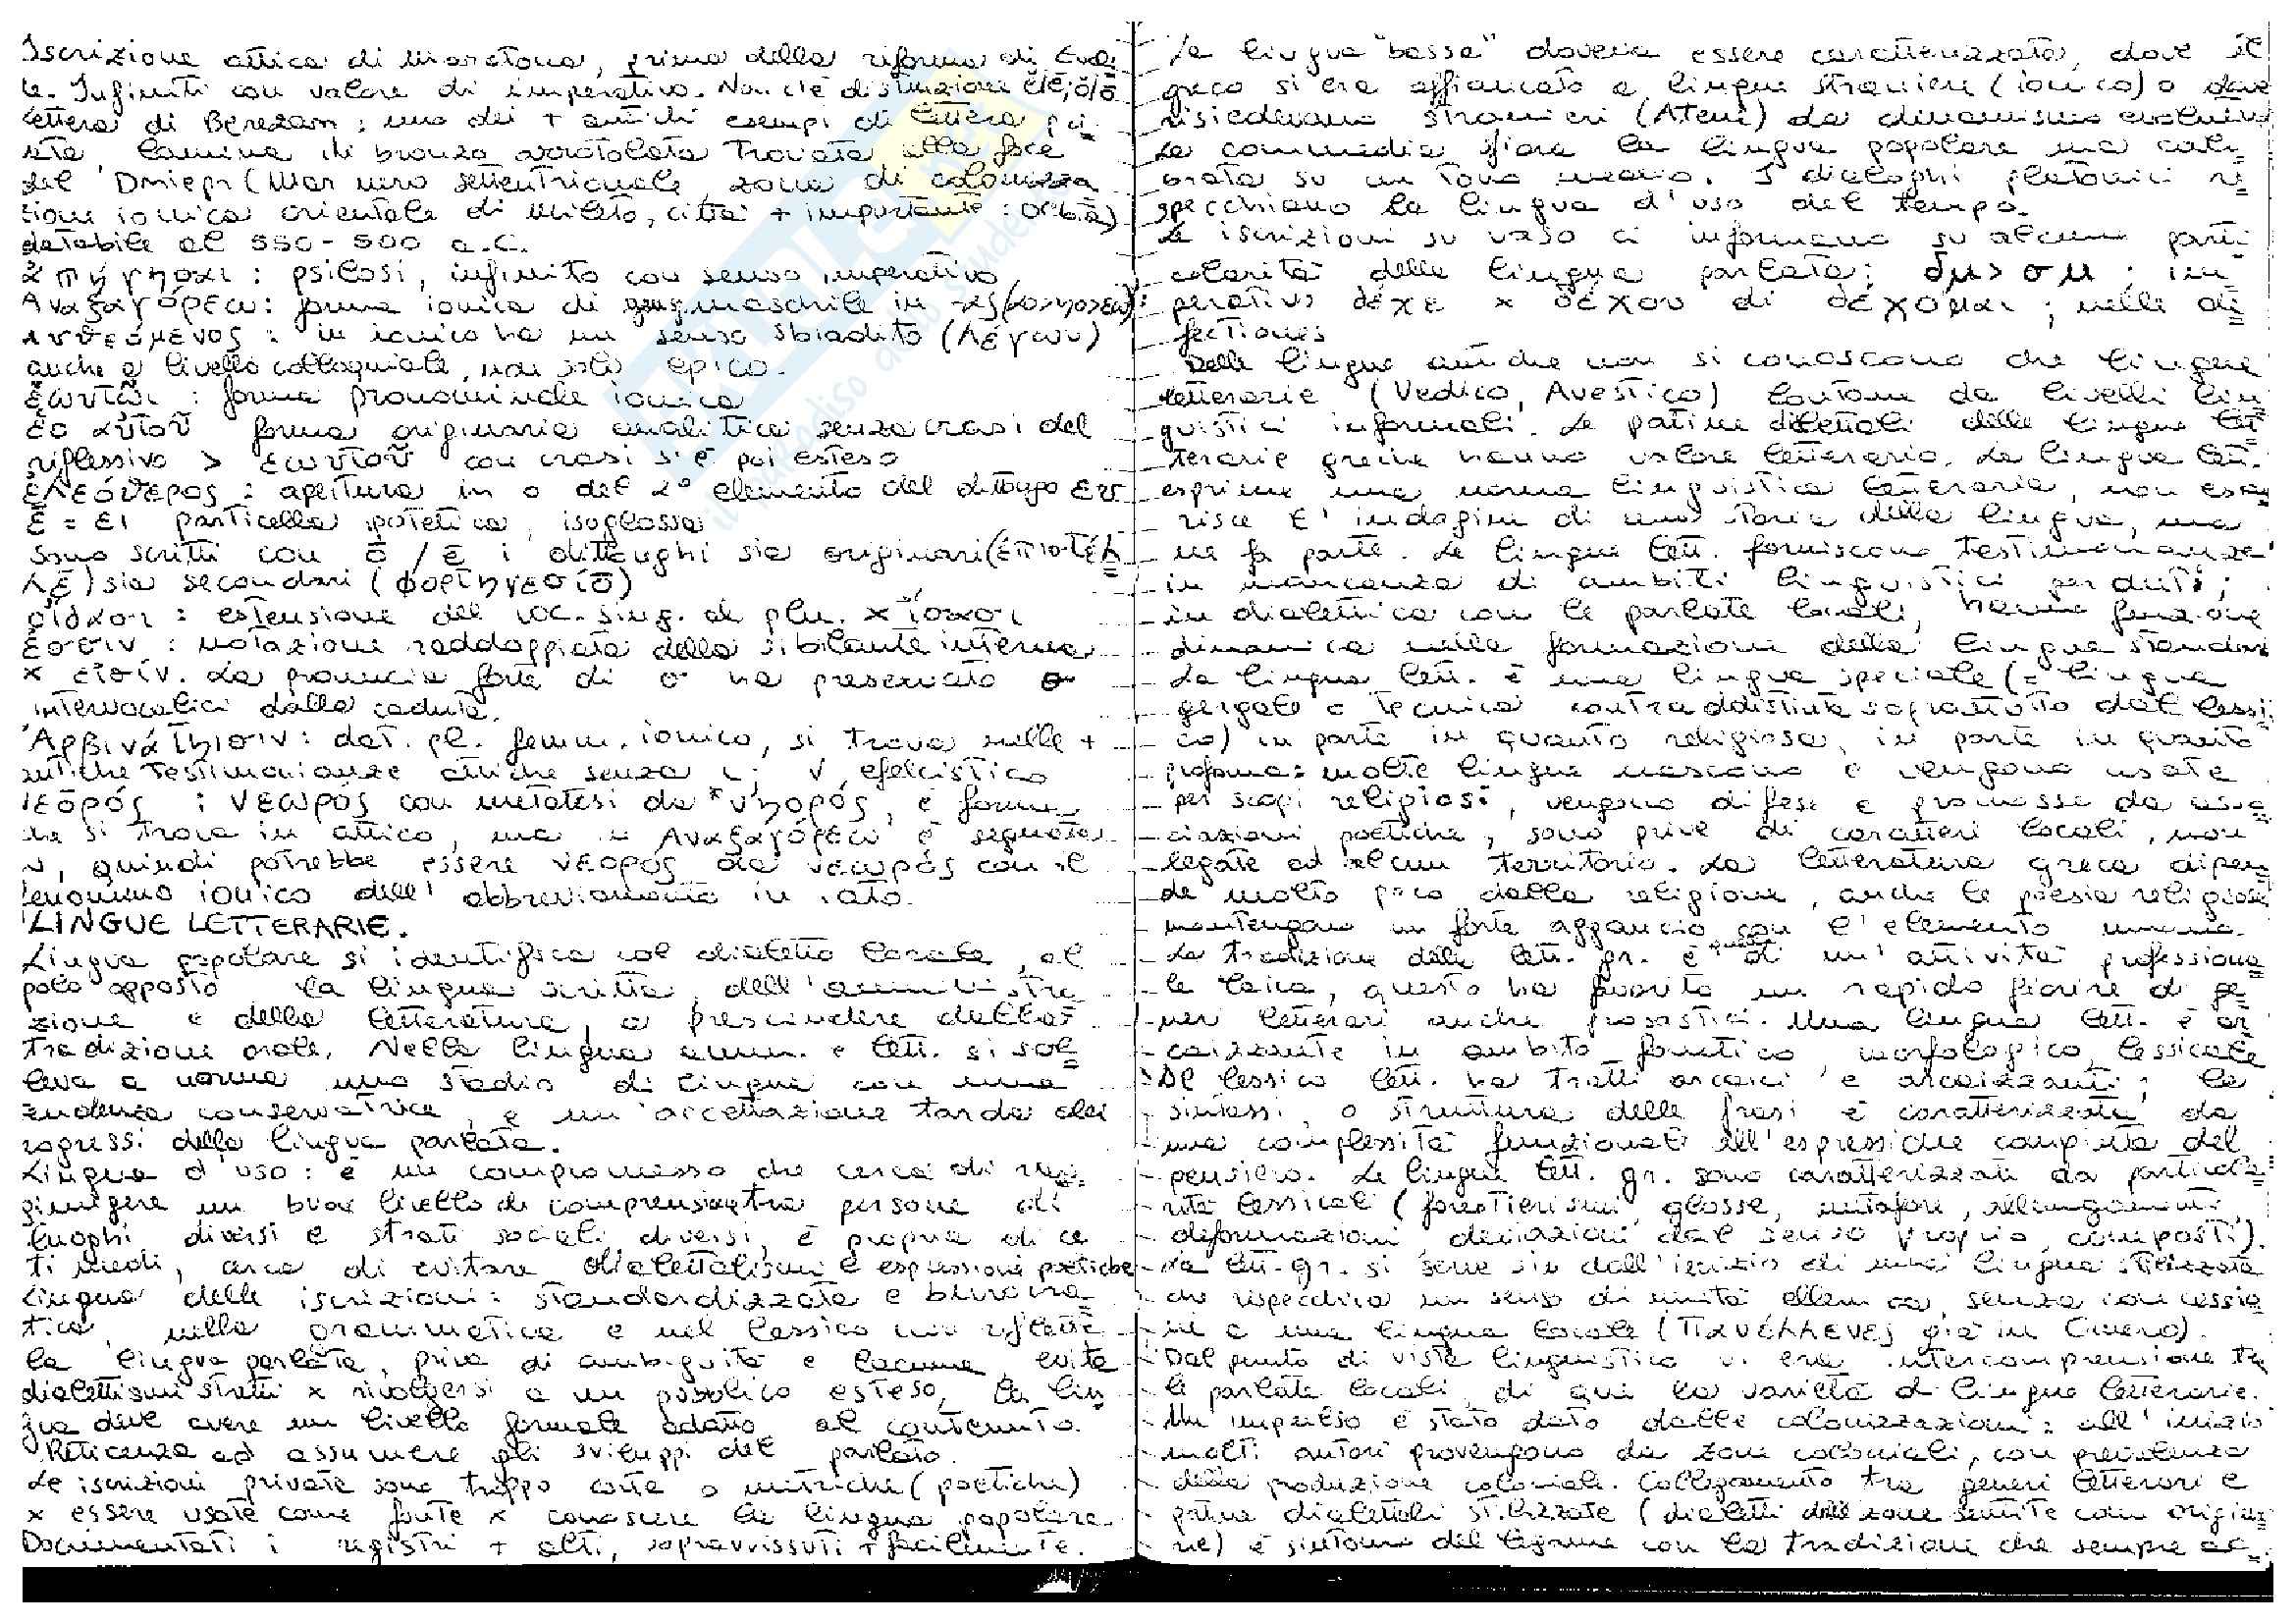 Iscrizione attica di Maratona, prima della riforma di Eucli
de. Infiniti con valore di imperativo. Non c'è distinzione ĕ/ē, ŏ/ō
lettera di Berezan: uno dei + antichi esempi di lettera pri
vata, lamina di bronzo arrotolata trovata alla foce
del Dniepr (Mar nero settentrionale, zona di colonizza
zione ionica orientale di Mileto, città + importante: Olbia)
databile al 550-500 a.C.
: psilosi, infinito con senso imperativo
Ἀναξαγόρεω: forma ionica di gen. maschile in -ης
: in ionico ha un senso sbiadito (λέγων)
anche a livello colloquiale, non solo epico.
: forma pronominale ionica
forma originaria analitica senza crasi del
riflessivo > ἑωυτοῦ con crasi si è poi esteso
: apertura in o del 2° elemento del dittongo ευ
ē = εἰ particella ipotetica, isoglossa
sono scritti con ō / ē i dittonghi sia originari
sia secondari
: estensione del loc. sing. al plu.
: notazione raddoppiata della sibilante interna
x εἰσίν. La pronuncia forte di σ ha preservato σ
intervocalici dalla caduta.
: dat. pl. femm. ionico, si trova nelle +
antiche testimonianze attiche senza ι; ν efelcistico
: νεωρός con metatesi da *νηορός, è forma
che si trova in attico, ma in Ἀναξαγόρεω è segnato
ω, quindi potrebbe essere νεορός da νεωρός con il
fenomeno ionico dell'abbreviamento in iato.
LINGUE LETTERARIE.
Lingua popolare si identifica col dialetto locale, al
polo opposto la lingua scritta, dell'amministra
zione e della letteratura, a prescindere dalla
tradizione orale. Nella lingua amm. e lett. si sol=
leva a norma uno stadio di lingua con una
tendenza conservatrice, e un'accettazione tarda dei
progressi della lingua parlata.
Lingua d'uso: è un compromesso che cerca di rag=
giungere un buon livello di comprensione tra persone di
luoghi diversi e strati sociali diversi, è propria di ce
ti medi, cerca di evitare dialettalismi e espressioni poetiche
Lingua delle iscrizioni: standardizzata e burocra
tica, nella grammatica e nel lessico non riflette
la lingua parlata, priva di ambiguità e lacune evita
dialettismi stretti x rivolgersi a un pubblico esteso, la lin=
gua deve avere un livello formale adatto al contenuto.
Reticenza ad assumere gli sviluppi del parlato.
Le iscrizioni private sono troppo corte o metriche (poetiche)
x essere usate come fonte x conoscere la lingua popolare.
Documentati i registri + alti, sopravvissuti + facilmente.
La lingua "bassa" doveva essere caratterizzata, dove il
greco si era affiancato a lingue straniere (ionico) o dove
risiedevano stranieri (Atene) da dinamismo evolutivo
La commedia sfiora la lingua popolare ma cali
brata su un tono medio. I dialoghi platonici ri=
specchiano la lingua d'uso del tempo.
Le iscrizioni su vaso ci informano su alcune parti
colarità della lingua parlata: im=
perativo δέχε x δέχου di δέχομαι; nelle di=
fectiones
Delle lingue antiche non si conoscono che lingue
letterarie (Vedico, Avestico) lontane da livelli lin=
guistici informali. Le patine dialettali delle lingue let=
terarie greche hanno valore letterario. La lingua lett.
esprime una norma linguistica letteraria, non esau
risce l'indagine di una storia della lingua, ma
ne fa parte. Le lingue lett. forniscono testimonianze
in mancanza di ambiti linguistici perduti;
in dialettica con le parlate locali, hanno funzione
dinamica nella formazione della lingua standard
La lingua lett. è una lingua speciale (= lingua
gergale o tecnica contraddistinta soprattutto dal lessi
co) in parte in quanto religiosa, in parte in quanto
profana: molte lingue nascono e vengono usate
per scopi religiosi, vengono difese e promosse da asso=
ciazioni poetiche, sono prive di caratteri locali, non
legate ad alcun territorio. La letteratura greca dipen
de molto poco dalla religione, anche le poesie religiose
mantengono un forte aggancio con l'elemento umano.
La tradizione della lett. gr. è quella di un'attività professiona=
le laica, questo ha favorito un rapido fiorire di ge=
neri letterari anche prosastici. Una lingua lett. è ar
caizzante in ambito fonetico, morfologico, lessicale
Il lessico lett. ha tratti arcaici e arcaizzanti; la
sintassi, o struttura delle frasi è caratterizzata da
una complessità funzionale all'espressione compiuta del
pensiero. Le lingue lett. gr. sono caratterizzati da particola=
rità lessicali (forestierismi, glosse, metafore, allungamenti,
deformazioni, deviazioni dal senso proprio, composti).
La lett. gr. si serve sin dall'inizio di una lingua stilizzata
che rispecchia un senso di unità ellenica, senza concessio
ni a una lingua locale (Πανέλληνες già in Omero).
Dal punto di vista linguistico vi era intercomprensione tra
le parlate locali, di qui la varietà di lingue letterarie.
Un impulso è stato dato dalle colonizzazioni: all'inizio
molti autori provengono da zone coloniali, con prevalenza
della produzione coloniale. Collegamento tra generi letterari e
patine dialettali stilizzate (dialetti delle zone sentite come origina=
rie) è sintomo del legame con la tradizione che sempre ac=